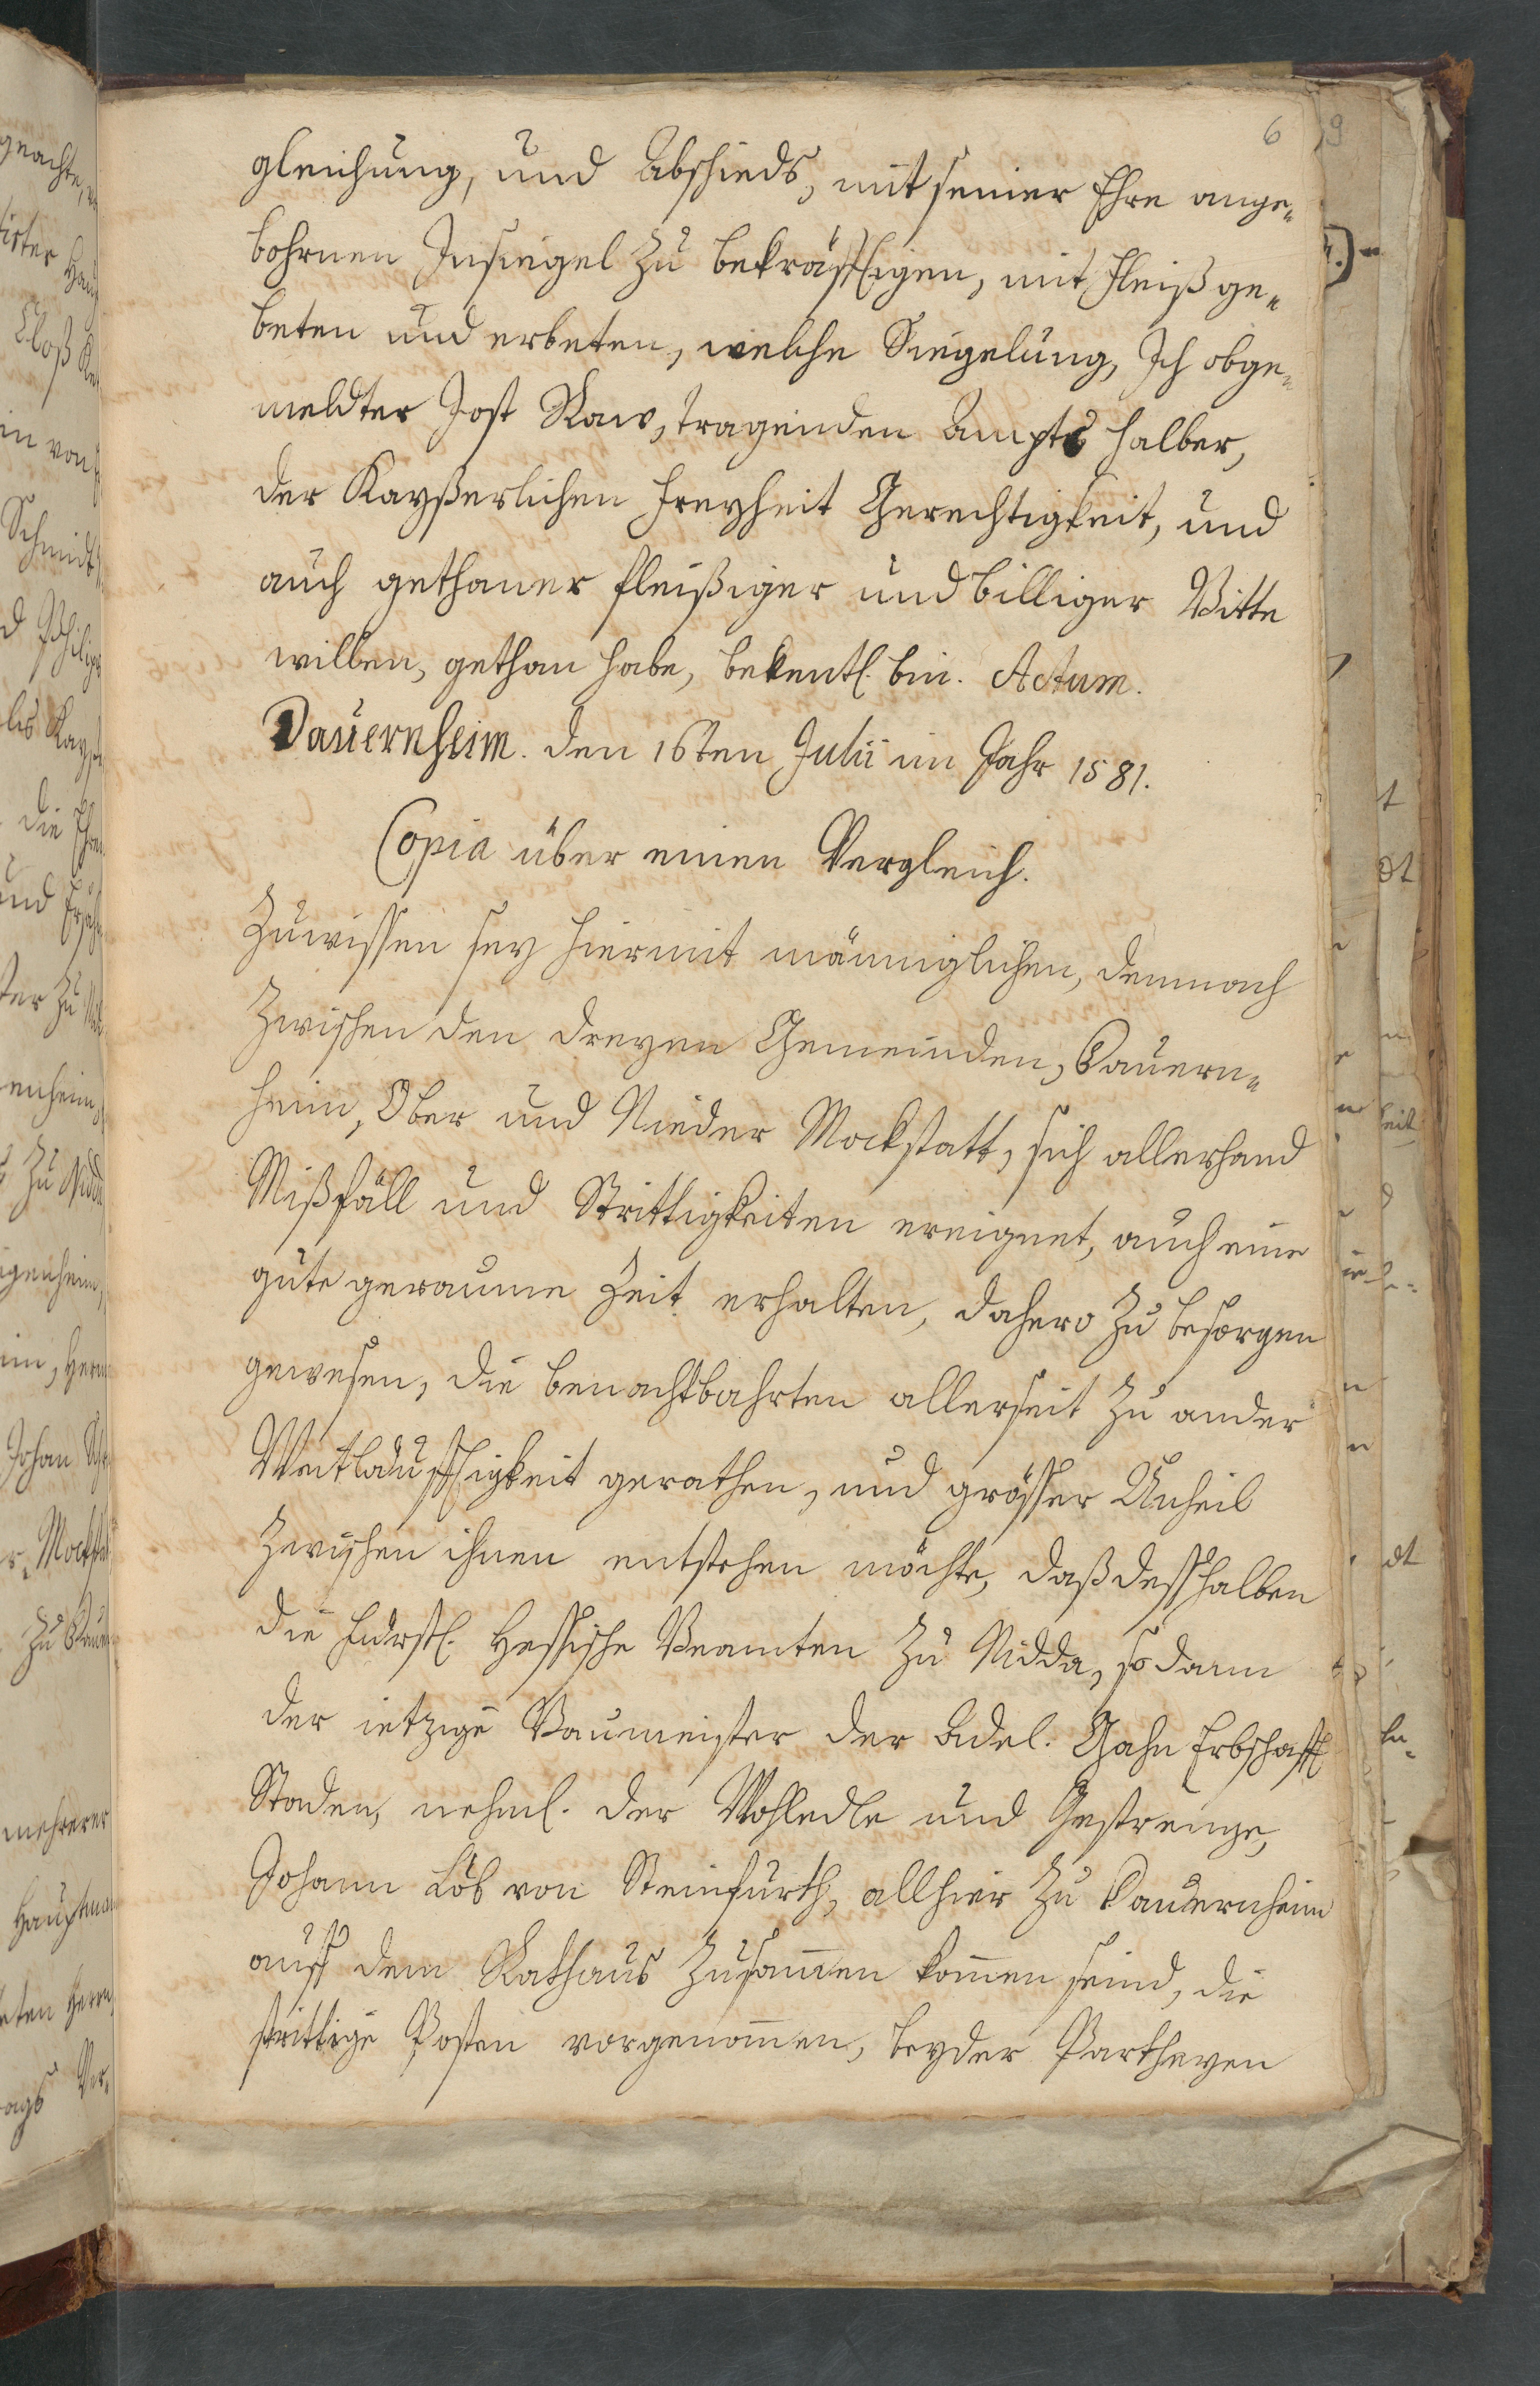 6
gleichung, und Abschieds, mit seiner Ehre ange-
bohrnen Insiegel zu bekräfftigen, mit Fleiß ge-
beten und erbeten, welche Siegelung, Ich obge-
meldter Jost Raw, tragenden Ampts halber,
der Kayßerlichen Freyheit Gerechtigkeit, und
auch gethaner fleißiger und billiger Bitte
willen, gethan habe, bekentl. bin. Actum.
Dauernheim. den 16ten Julii im Jahr 1581.
Copia über einen Vergleich.
Zuwissen sey hiermit männiglichen, demnach
zwischen den dreyen Gemeinden, Dauern-
heim, Ober und Nieder Mockstatt, sich allerhand
Mißfäll und Strittigkeiten ereignet, auch eine
gute geraume Zeit erhalten, dahero zu besorgen
gewesen, die benachtbahrten allerseit zu ander
Weitläufftigkeit gerathen, und grösser Unheil
zwischen ihnen entstehen möchte, daß desshalben
die Fürstl. Hessische Beamten zu Nidda, so dann
der ietzige Baumeister der Adel. Gahn Erbschafft
Staden, nehml. der Wohledle und Gestrenge,
Johann Löb von Steinfurth, allhier zu Dauernheim
auff dem Rathaus zusam̅en kom̅en seind, die
strittige Posten vorgenom̅en, beyder Partheyen